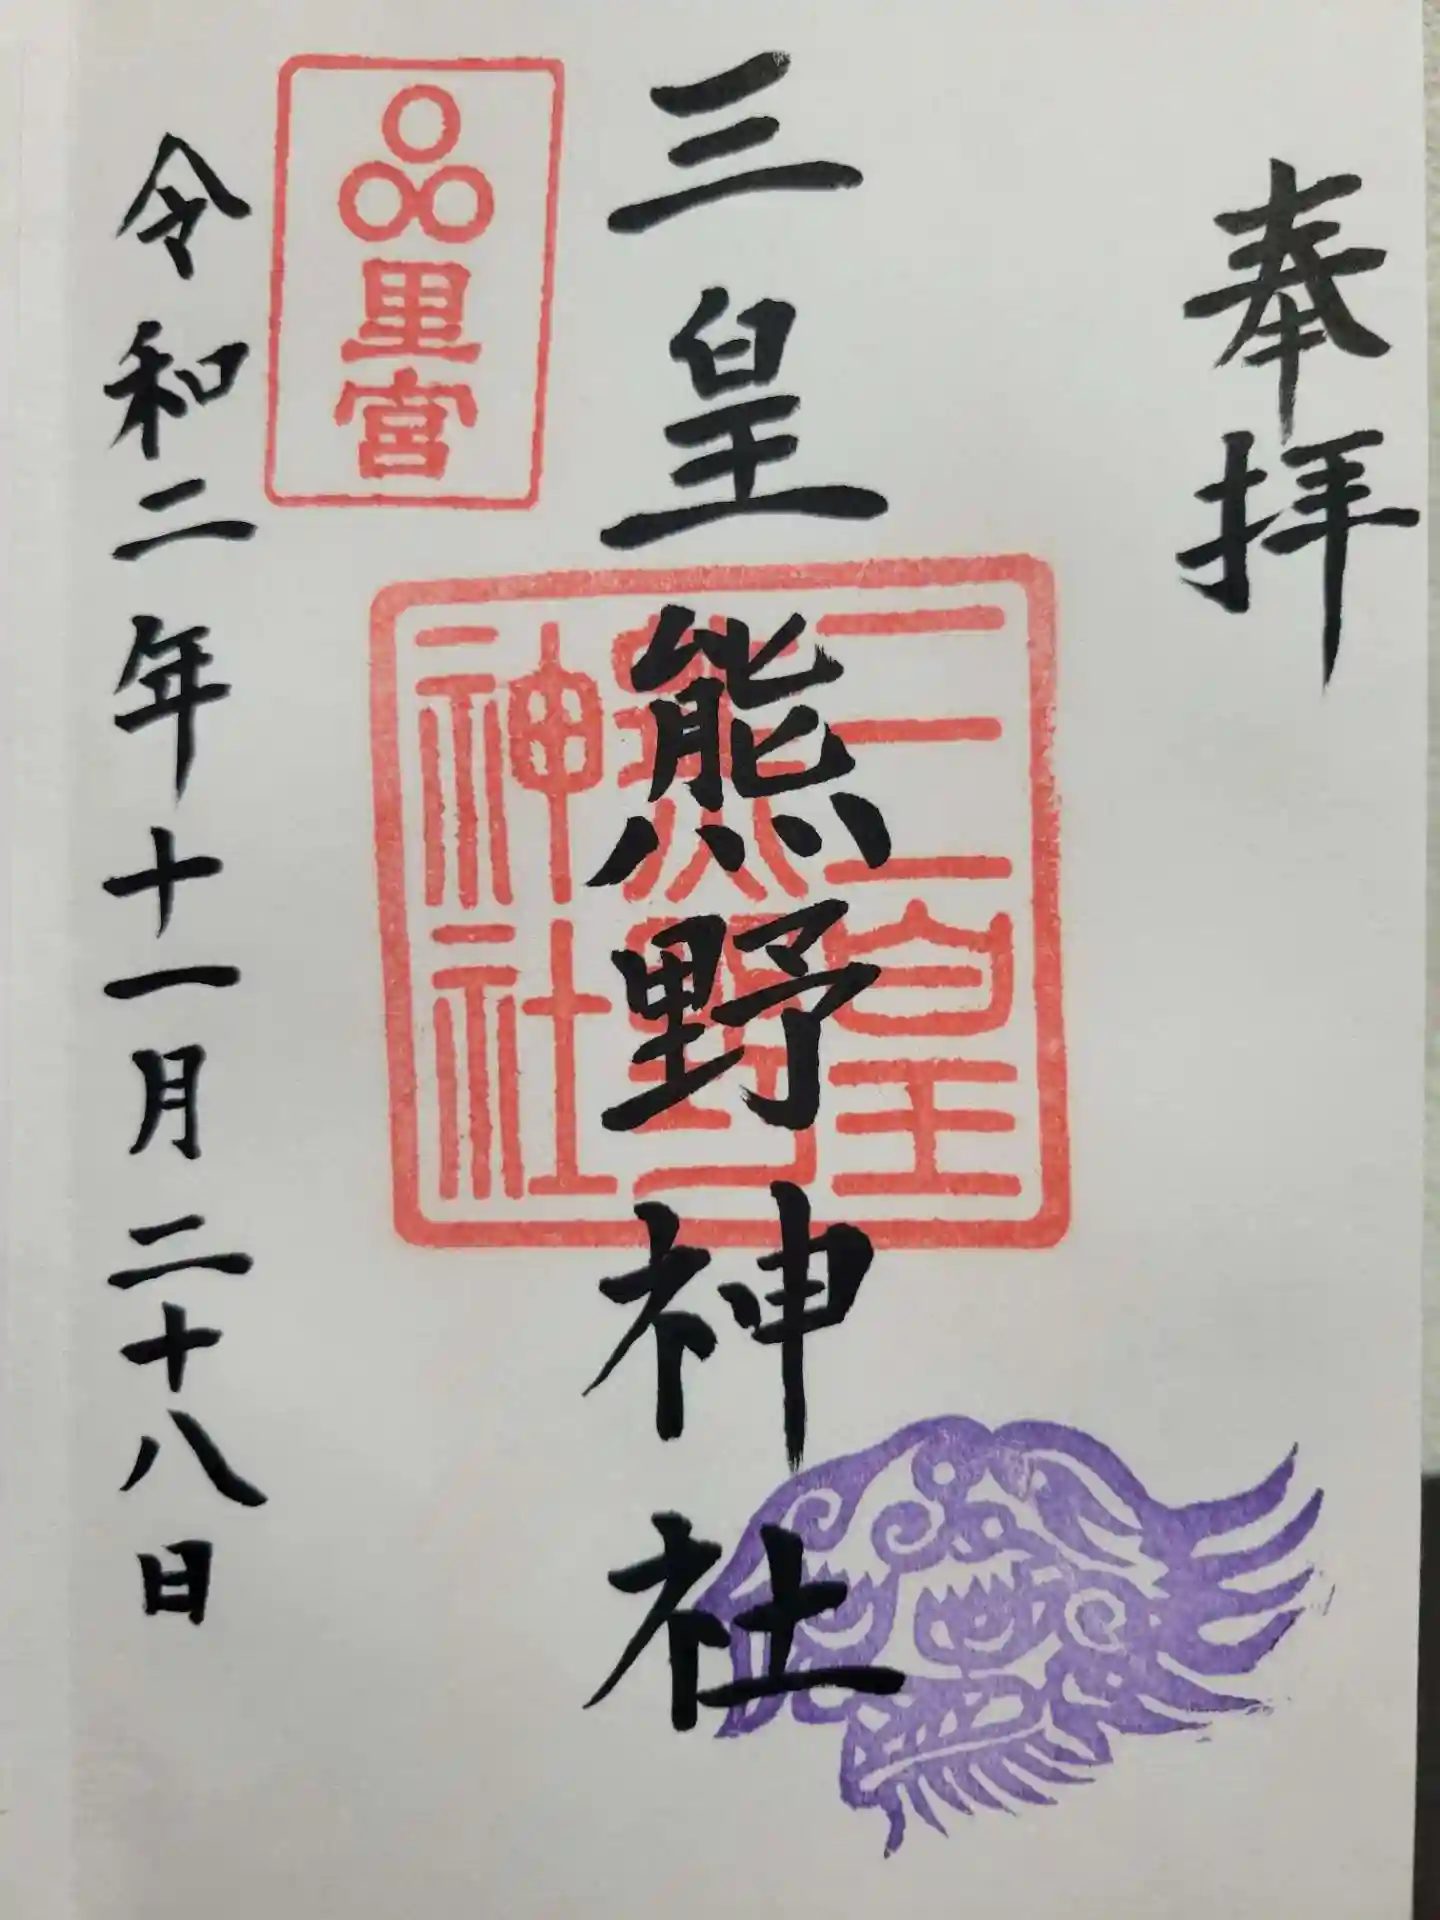 奉拝
三皇熊野神社
三皇
熊野
神社
里宮
令和二年十一月二十八日